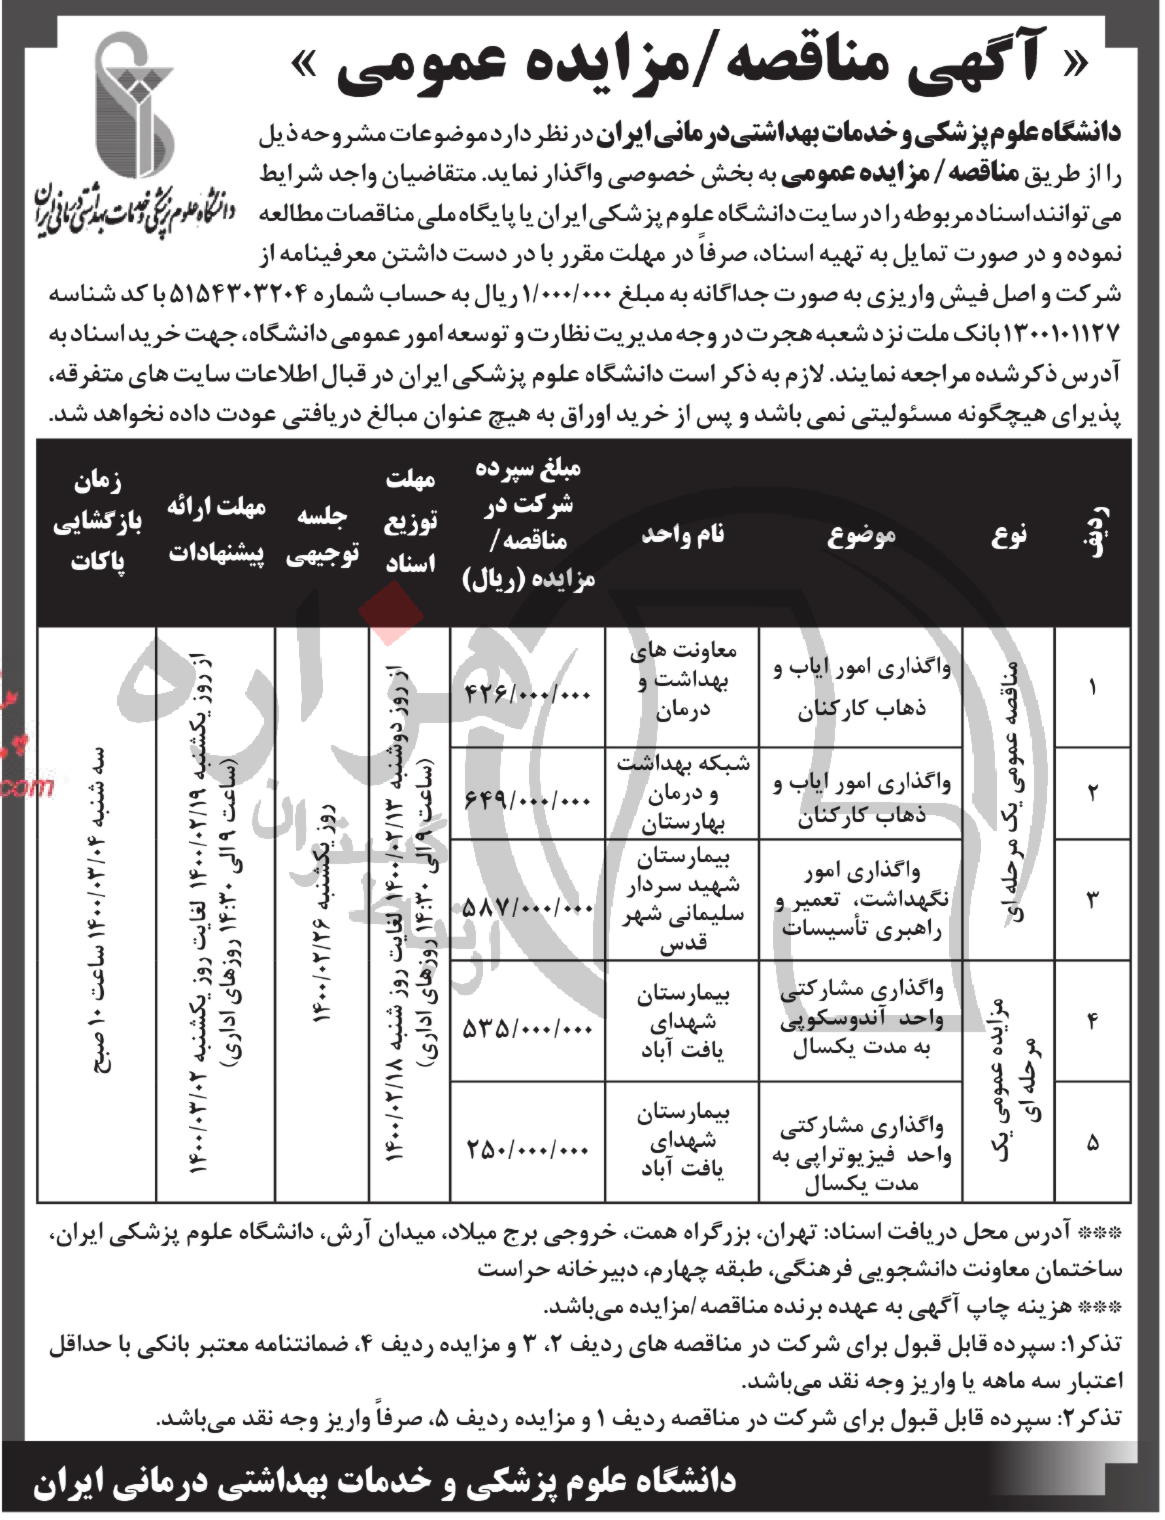 « آگهی مناقصه/مزایده عمومی »
دانشگاه علوم پزشکی و خدمات بهداشتی درمانی ایران
دانشگاه علوم پزشکی و خدمات بهداشتی درمانی ایران در نظر دارد موضوعات مشروحه ذیل
را از طریق مناقصه / مزایده عمومی به بخش خصوصی واگذار نماید. متقاضیان واجد شرایط
می‌توانند اسناد مربوطه را در سایت دانشگاه علوم پزشکی ایران یا پایگاه ملی مناقصات مطالعه
نموده و در صورت تمایل به تهیه اسناد، صرفاً در مهلت مقرر با در دست داشتن معرفینامه از
شرکت و اصل فیش واریزی به صورت جداگانه به مبلغ ۱/۰۰۰/۰۰۰ ریال به حساب شماره ۵۱۵۴۳۰۳۲۰۴ با کد شناسه
۱۳۰۰۱۰۱۱۲۷ بانک ملت نزد شعبه هجرت در وجه مدیریت نظارت و توسعه امور عمومی دانشگاه، جهت خرید اسناد به
آدرس ذکرشده مراجعه نمایند. لازم به ذکر است دانشگاه علوم پزشکی ایران در قبال اطلاعات سایت های متفرقه،
پذیرای هیچگونه مسئولیتی نمی باشد و پس از خرید اوراق به هیچ عنوان مبالغ دریافتی عودت داده نخواهد شد.
ردیف
نوع
موضوع
نام واحد
مبلغ سپرده
شرکت در
مناقصه/
مزایده (ریال)
مهلت
توزیع
اسناد
جلسه
توجیهی
مهلت ارائه
پیشنهادات
زمان
بازگشایی
پاکات
۱
مناقصه عمومی یک مرحله ای
واگذاری امور ایاب و
ذهاب کارکنان
معاونت های
بهداشت و
درمان
۴۲۶/۰۰۰/۰۰۰
از روز دوشنبه ۱۴۰۰/۰۲/۱۳ لغایت روز شنبه ۱۴۰۰/۰۲/۱۸
(ساعت ۹ الی ۱۴:۳۰ روزهای اداری)
روز یکشنبه ۱۴۰۰/۰۲/۲۶
از روز یکشنبه ۱۴۰۰/۰۲/۱۹ لغایت روز یکشنبه ۱۴۰۰/۰۳/۰۲
(ساعت ۹ الی ۱۴:۳۰ روزهای اداری)
سه شنبه ۱۴۰۰/۰۳/۰۴ ساعت ۱۰ صبح
۲
واگذاری امور ایاب و
ذهاب کارکنان
شبکه بهداشت
و درمان
بهارستان
۶۴۹/۰۰۰/۰۰۰
۳
واگذاری امور
نگهداشت، تعمیر و
راهبری تأسیسات
بیمارستان
شهید سردار
سلیمانی شهر
قدس
۵۸۷/۰۰۰/۰۰۰
۴
مزایده عمومی یک
مرحله ای
واگذاری مشارکتی
واحد آندوسکوپی
به مدت یکسال
بیمارستان
شهدای
یافت آباد
۵۳۵/۰۰۰/۰۰۰
۵
واگذاری مشارکتی
واحد فیزیوتراپی به
مدت یکسال
بیمارستان
شهدای
یافت آباد
۲۵۰/۰۰۰/۰۰۰
هزاره
گستران
ارتباط
.com
*** آدرس محل دریافت اسناد: تهران، بزرگراه همت، خروجی برج میلاد، میدان آرش، دانشگاه علوم پزشکی ایران،
ساختمان معاونت دانشجویی فرهنگی، طبقه چهارم، دبیرخانه حراست
*** هزینه چاپ آگهی به عهده برنده مناقصه/مزایده می‌باشد.
تذکر۱: سپرده قابل قبول برای شرکت در مناقصه های ردیف ۲، ۳ و مزایده ردیف ۴، ضمانتنامه معتبر بانکی با حداقل
اعتبار سه ماهه یا واریز وجه نقد می‌باشد.
تذکر۲: سپرده قابل قبول برای شرکت در مناقصه ردیف ۱ و مزایده ردیف ۵، صرفاً واریز وجه نقد می‌باشد.
دانشگاه علوم پزشکی و خدمات بهداشتی درمانی ایران